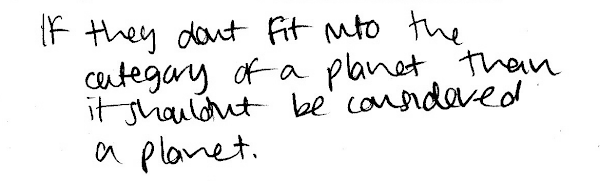 If they dont fit into the
category of a planet than
it shouldnt be considered
a planet.